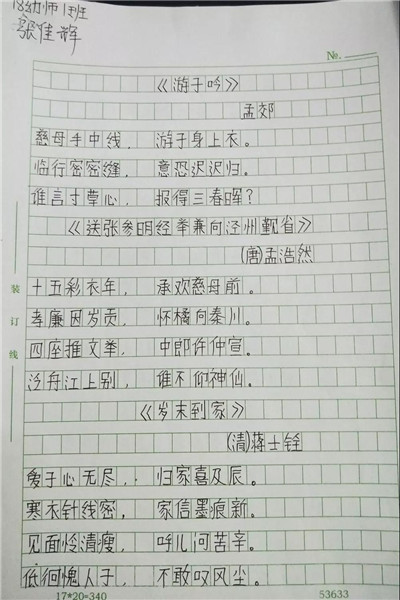 18幼师1班
张佳辉
No.
《游子吟》
孟郊
慈母手中线， 游子身上衣。
临行密密缝， 意恐迟迟归。
谁言寸草心， 报得三春晖？
《送张参明经举兼向泾州觐省》
(唐)孟浩然
十五彩衣年， 承欢慈母前。
孝廉因岁贡， 怀橘向秦川。
四座推文举， 中郎许仲宣。
泛舟江上别， 谁不仰神仙。
《岁末到家》
(清)蒋士铨
爱子心无尽， 归家喜及辰。
寒衣针线密， 家信墨痕新。
见面怜清瘦， 呼儿问苦辛。
低徊愧人子， 不敢叹风尘。
装订线
17*20=340 53633